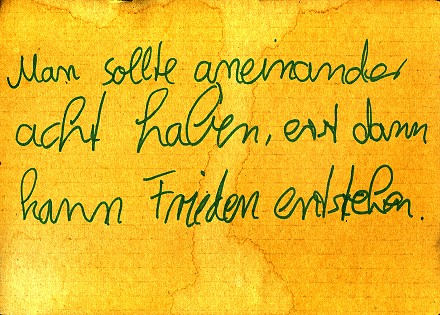 Man sollte aneinander
acht haben, erst dann
kann Frieden entstehen.